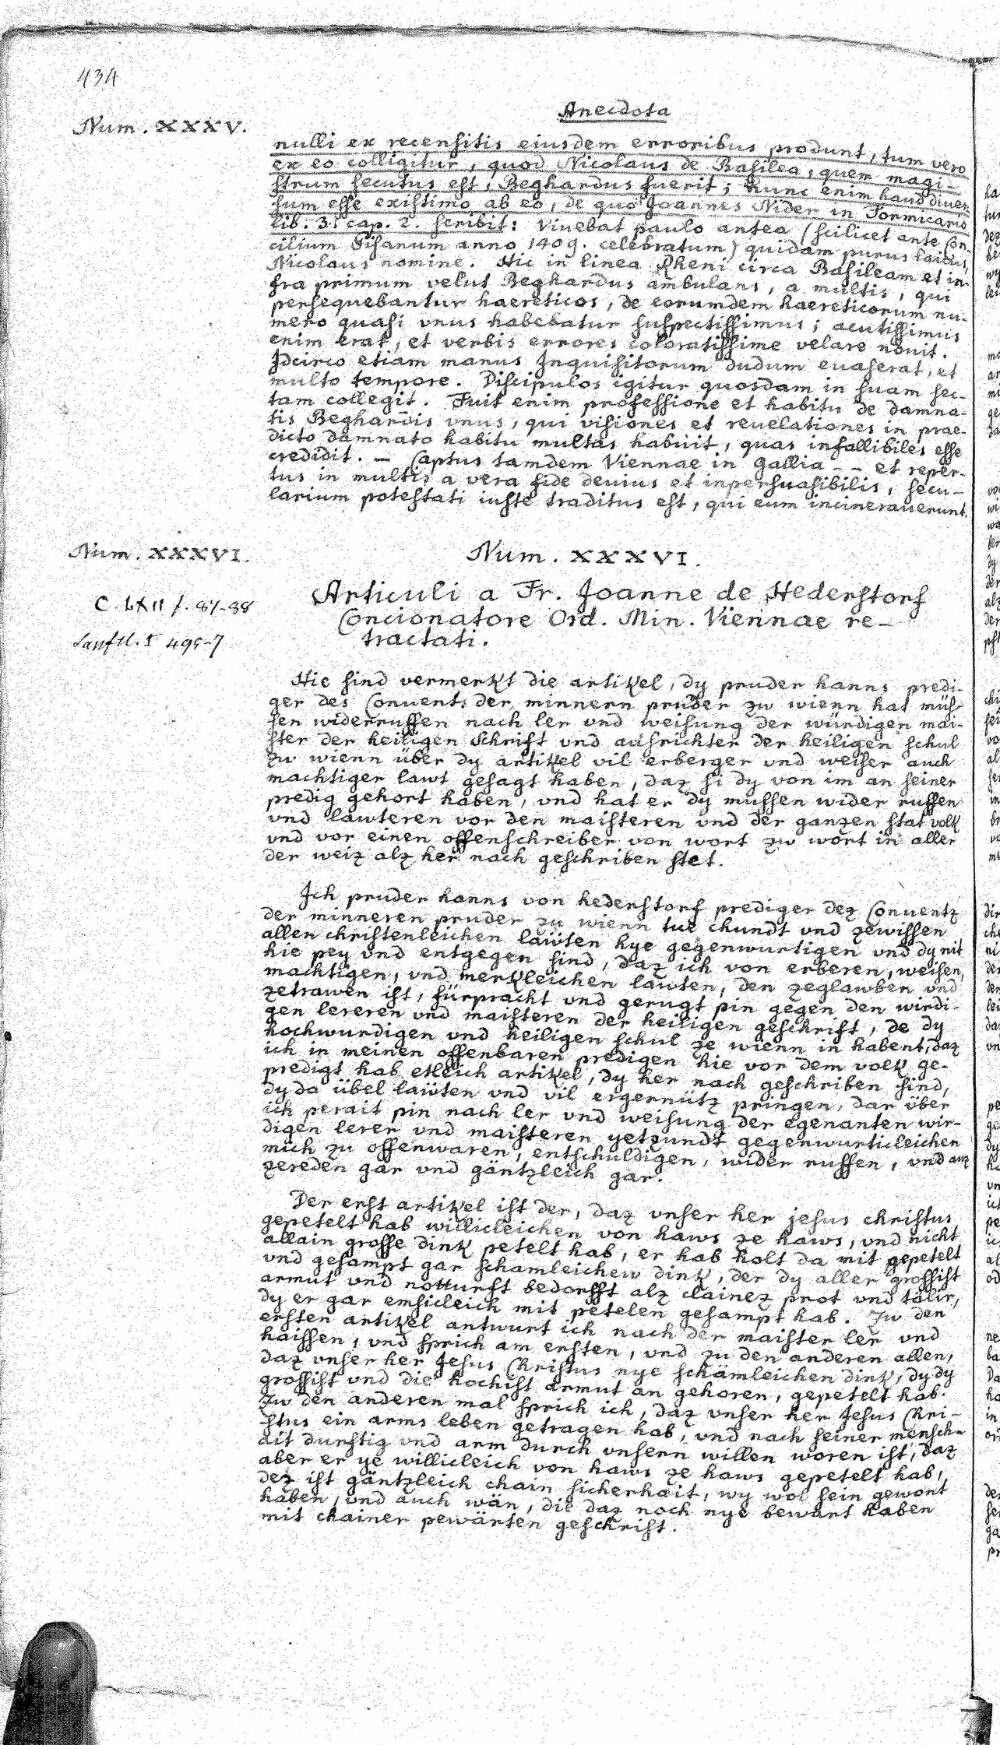 434
Anecdota
Num. XXXV.
nulli ex recensitis eiusdem erroribus produnt, tum vero
ex eo colligitur, quod Nicolaus de Basilea, quem magi-
strum secutus est, Beghardus fuerit; Nunc enim haud diver-
sum esse existimo ab eo, de quo Joannes Nider in Formicario
lib. 3. cap. 2. scribit: Viuebat paulo antea (scilicet ante Con-
cilium Pisanum anno 1409. celebratum) quidam purus laicus,
Nicolaus nomine. Hic in linea Rheni circa Basileam et in-
fra primum velut Beghardus ambulans, a multis, qui
persequebantur haereticos, de eorumdem haereticorum nu-
mero quasi vnus habebatur suspectissimus; acutissimus
enim erat, et verbis errores coloratissime velare nouit.
Idcirco etiam manus Inquisitorum dudum euaserat, et
multo tempore. Discipulos igitur quosdam in suam sec-
tam collegit. Fuit enim professione et habitu de damna-
tis Beghardis vnus, qui visiones et reuelationes in prae-
dicto damnato habitu multas habuit, quas infallibiles esse
credidit. — Captus tamdem Viennae in Gallia -- et reper-
tus in multis a vera fide deuius et inpersuasibilis, secu-
larium potestati iuste traditus est, qui eum incinerauerunt.
Num. XXXVI.
Num. XXXVI.
C. LXII f. 87-88
495-7
Articuli a Fr. Joanne de Hederstorf
Concionatore Ord. Min. Viennae re-
tractati.
Hie sind vermerkt die artikel, dy pruder hanns predi-
ger des Conuents der minnern pruder zw wienn hat müs-
sen widerruffen nach ler vnd weisung der würdigen mai-
ster der heiligen Schrift vnd ausrichter der heiligen schul
zw wienn über dy artikel vil erberger vnd weiser auch
machtiger lawt gesagt haben, daz si dy von im an seiner
predig gehort haben, vnd hat er dy mussen wider ruffen
vnd lawteren vor den maisteren vnd der ganzen stat volk
vnd vor einen offenschreiber von wort zw wort in aller
der weiz alz her nach geschriben stet.
Ich pruder hanns von hederstorf prediger dez Conuentz
der minneren pruder zu wienn tue chundt vnd zewissen
allen christenleichen lawten hye gegenwurtigen vnd dy nit
hie pey vnd entgegen sind, daz ich von erberen, weisen,
machtigen, vnd merkleichen lawten, den zeglawben vnd
zetrawen ist, fürpracht vnd gerugt pin gegen den wirdi-
gen lereren vnd maisteren der heiligen geschrift, de dy
hochwurdigen vnd heiligen schul ze wienn in habent, daz
ich in meinen offenbaren predigen hie vor dem volk ge-
predigt hab etleich artikel, dy her nach geschriben sind,
dy da übel lawten vnd vil ergernutz pringen, dar über
ich perait pin nach ler vnd weisung der egenanten wir-
digen lerer vnd maisteren yetzundt gegenwurticleichen
mich zu offenwaren, entschuldigen, wider ruffen, vnd auz
zereden gar vnd gäntzleich gar.
Der erst artikel ist der, daz vnser her jesus christus
gepetelt hab willicleichen von haws ze haws, vnd nicht
allain grosse dink petelt hab, er hab holt da mit gepetelt
vnd gesampt gar schamleichew dink, der dy aller grossist
armut vnd notturft bedorfft alz clainez prot vnd
dy er gar emsicleich mit petelen gesampt hab. Zu den
ersten artikel antwurt ich nach der maister ler vnd
haissen, vnd sprich am ersten, vnd zu den anderen allen,
daz vnser her Jesus Christus nye schämleichen dink, dy dy
grossist vnd die hochist armut an gehoren, gepetelt hab.
Zu den anderen mal sprich ich, daz vnser her Jesus Chri-
stus ein arms leben getragen hab, vnd nach seiner mensch-
ait durftig vnd arm durch vnsern willen woren ist, daz
aber er ye willicleich von haws ze haws gepetelt hab,
dez ist gäntzleich chain sicherhait, wy wol sein gewont
haben, vnd auch wän, die daz noch nye bewart haben
mit chainer pewärten geschrift.